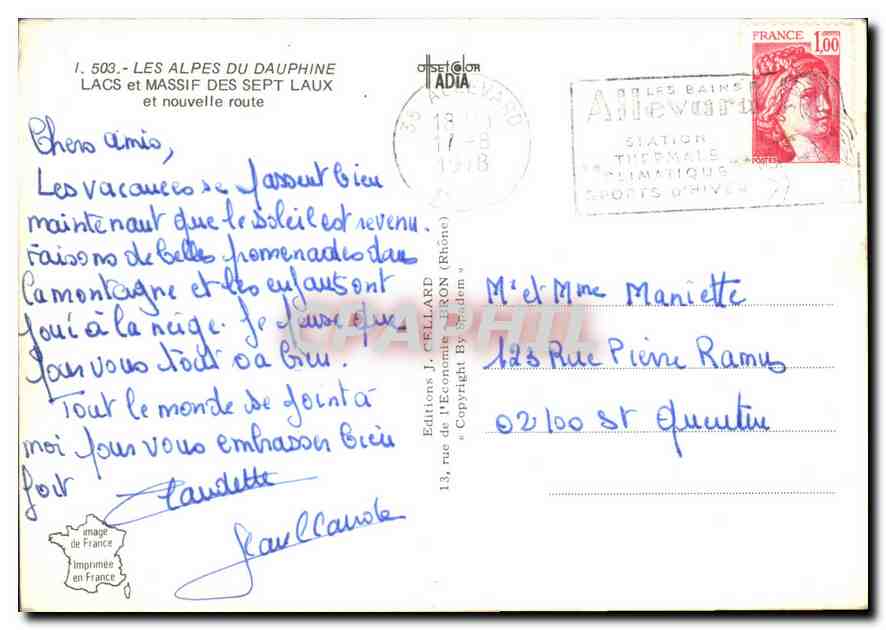 I. 503.- LES ALPES DU DAUPHINE
LACS et MASSIF DES SEPT LAUX
et nouvelle route
offset color
ADIA
38 ALLEVARD
17-8
1978
LES BAINS
Allevard
STATION
THERMALE
CLIMATIQUE
SPORTS D'HIVER
FRANCE 1,00
POSTES
Chers amis,
Les vacances se passent bien
maintenant que le soleil est revenu.
Faisons de belles promenades dans
la montagne et les enfants ont
joui à la neige. Je pense que
pour vous tout va bien.
Tout le monde se joint à
moi pour vous embrasser bien
fort
Claudette
Jean Claude
image
de France
Imprimée
en France
Editions J. CELLARD
13, rue de l'Economie - BRON (Rhône)
« Copyright By Spadem »
CPAPHIL
Mr et Mme Maniette
123 Rue Pierre Ramus
02100 St Quentin